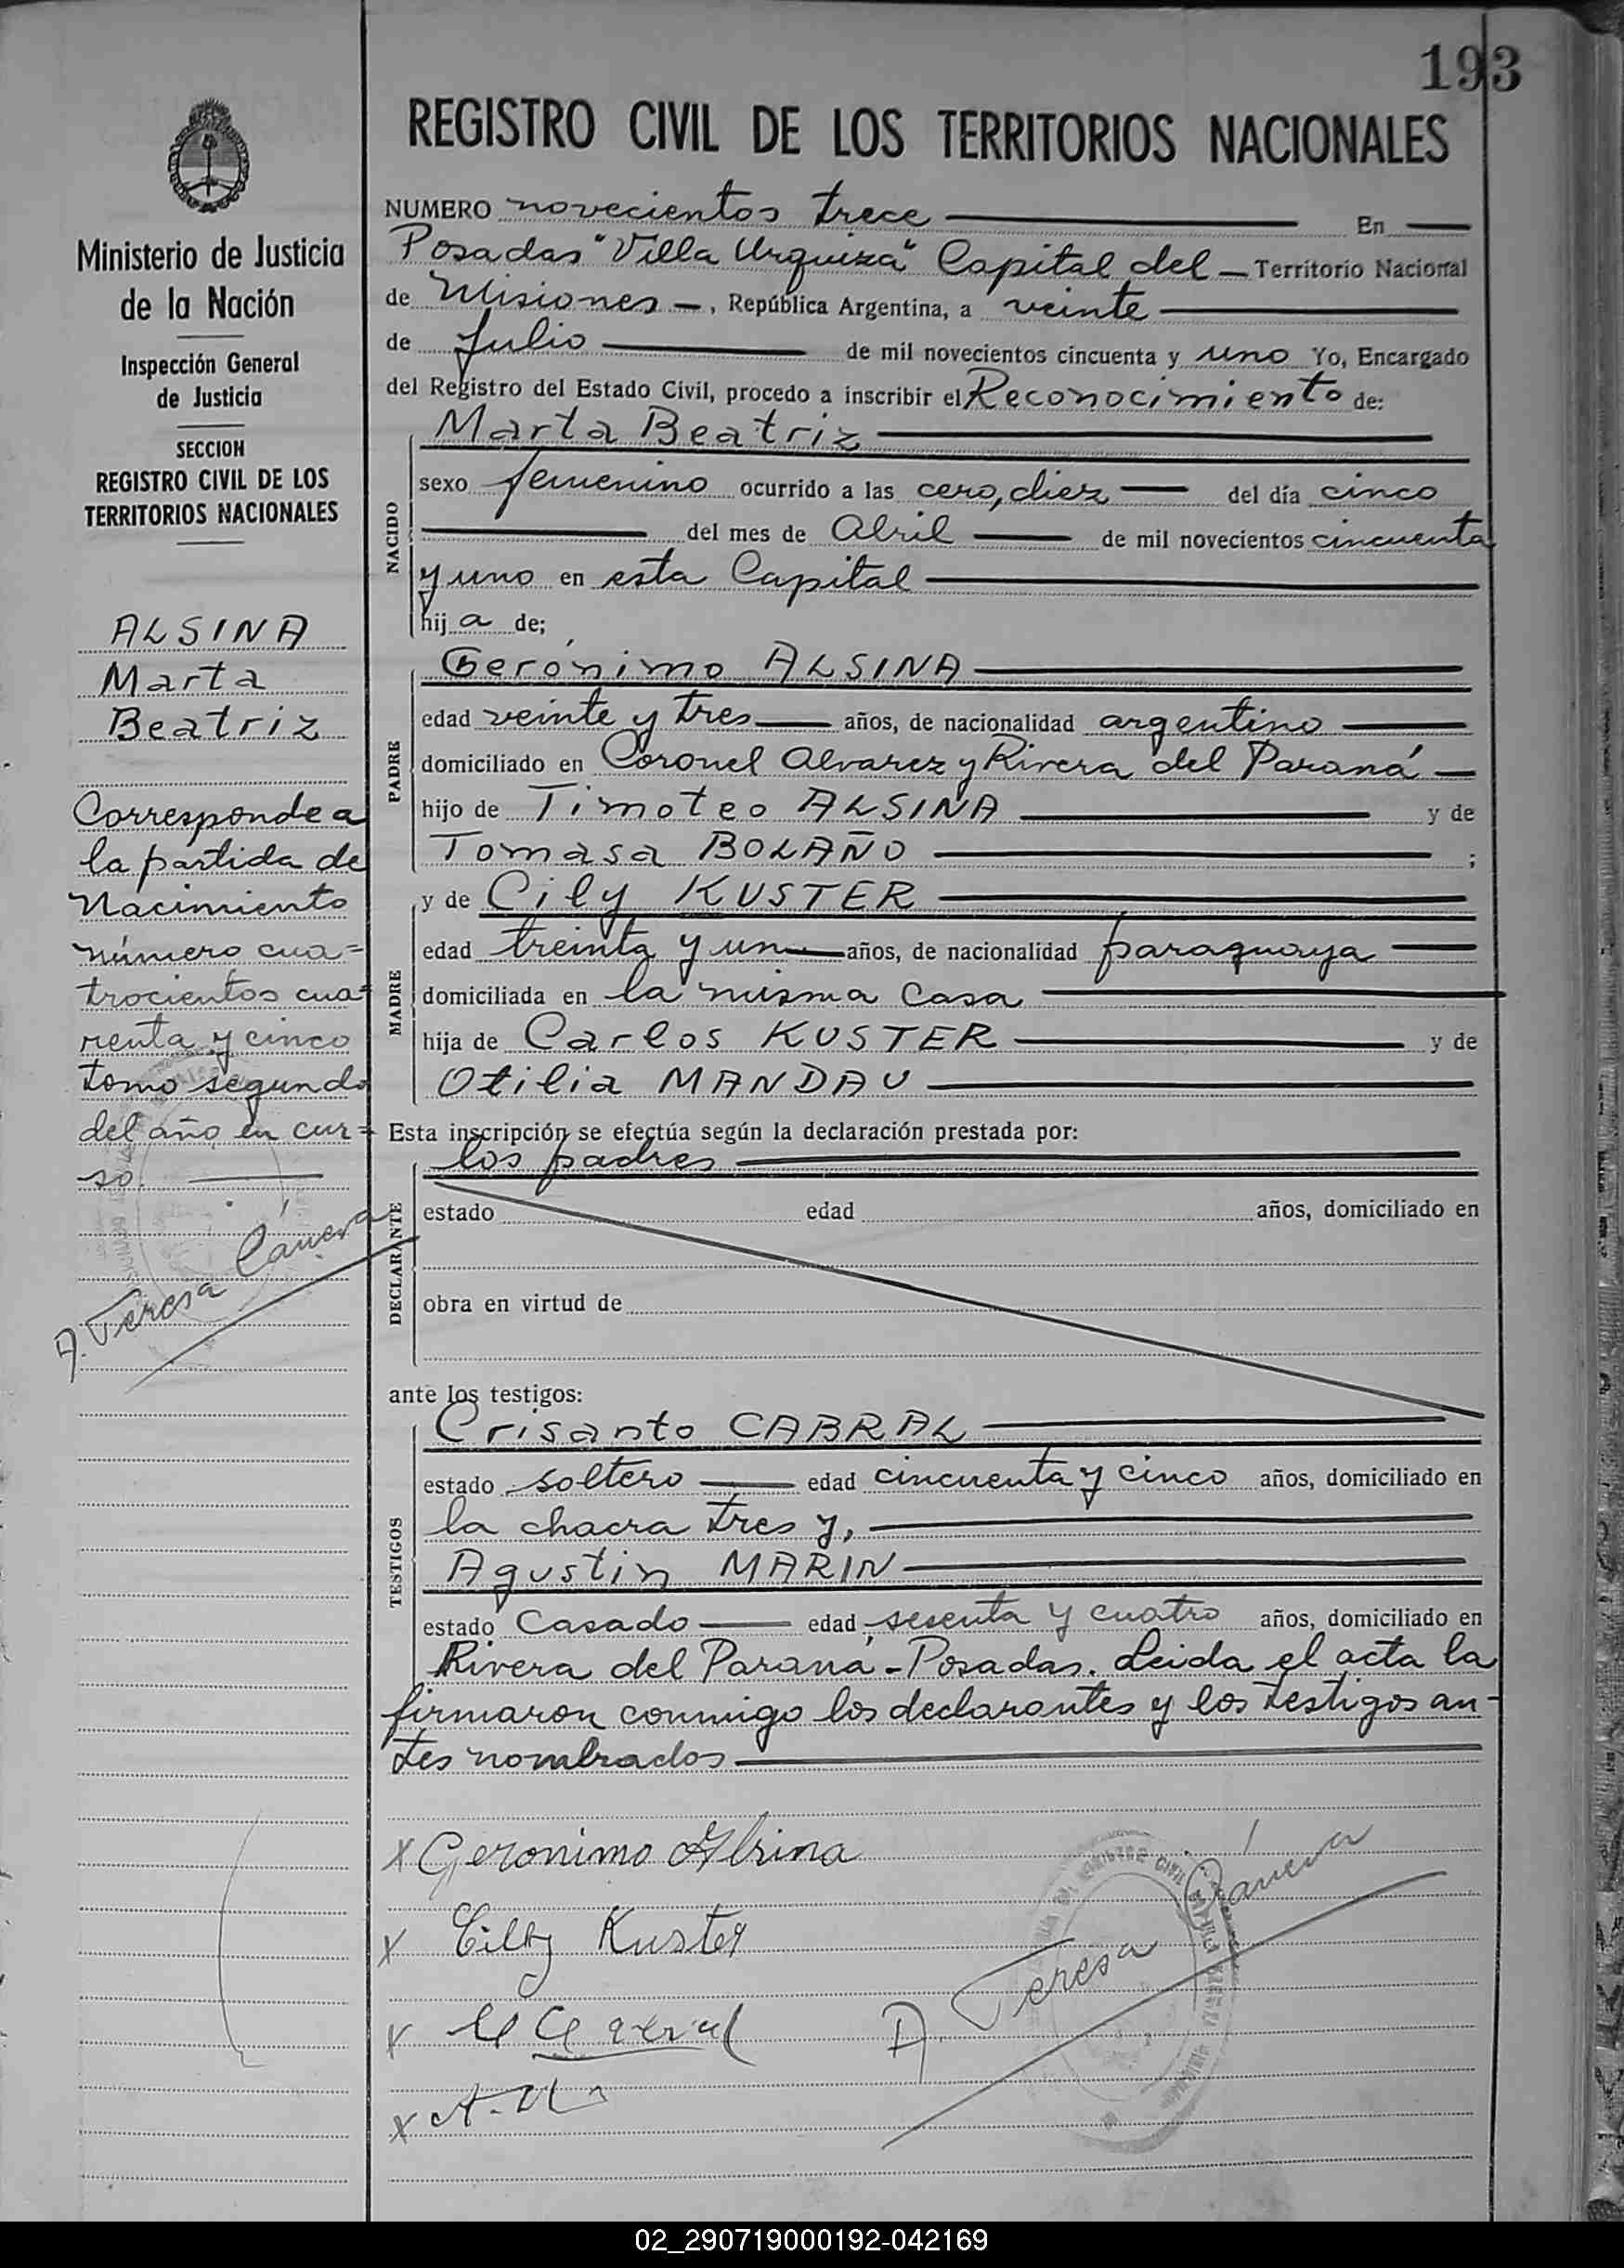 193
REGISTRO CIVIL DE LOS TERRITORIOS NACIONALES
Ministerio de Justicia
de la Nación
Inspección General
de Justicia
SECCION
REGISTRO CIVIL DE LOS
TERRITORIOS NACIONALES
ALSINA
Marta
Beatriz
Corresponde a
la partida de
Nacimiento
número cua=
trocientos cua=
renta y cinco
tomo segundo
del año en cur=
so.
A. Teresa
NUMERO novecientos trece En
Posadas "Villa Urquiza" Capital del Territorio Nacional
de Misiones, República Argentina, a veinte
de Julio de mil novecientos cincuenta y uno Yo, Encargado
del Registro del Estado Civil, procedo a inscribir el Reconocimiento de:
Marta Beatriz
NACIDO
sexo femenino ocurrido a las cero, diez del día cinco
del mes de Abril de mil novecientos cincuenta
y uno en esta Capital
hija de;
PADRE
Gerónimo ALSINA
edad veinte y tres años, de nacionalidad argentino
domiciliado en Coronel Alvarez y Rivera del Paraná
hijo de Timoteo ALSINA y de
Tomasa BOLAÑO ;
MADRE
y de Cily KUSTER
edad treinta y un años, de nacionalidad paraguaya
domiciliada en la misma Casa
hija de Carlos KUSTER y de
Otilia MANDAU
Esta inscripción se efectúa según la declaración prestada por:
los padres
DECLARANTE
estado edad años, domiciliado en
obra en virtud de
ante los testigos:
TESTIGOS
Crisanto CABRAL
estado soltero edad cincuenta y cinco años, domiciliado en
la chacra tres y,
Agustin MARIN
estado Casado edad sesenta y cuatro años, domiciliado en
Rivera del Paraná - Posadas. Leida el acta la
firmaron conmigo los declarantes y los testigos an-
tes nombrados
x Geronimo Alsina
x Cilly Kuster
x
x
A. Teresa
02_290719000192-042169